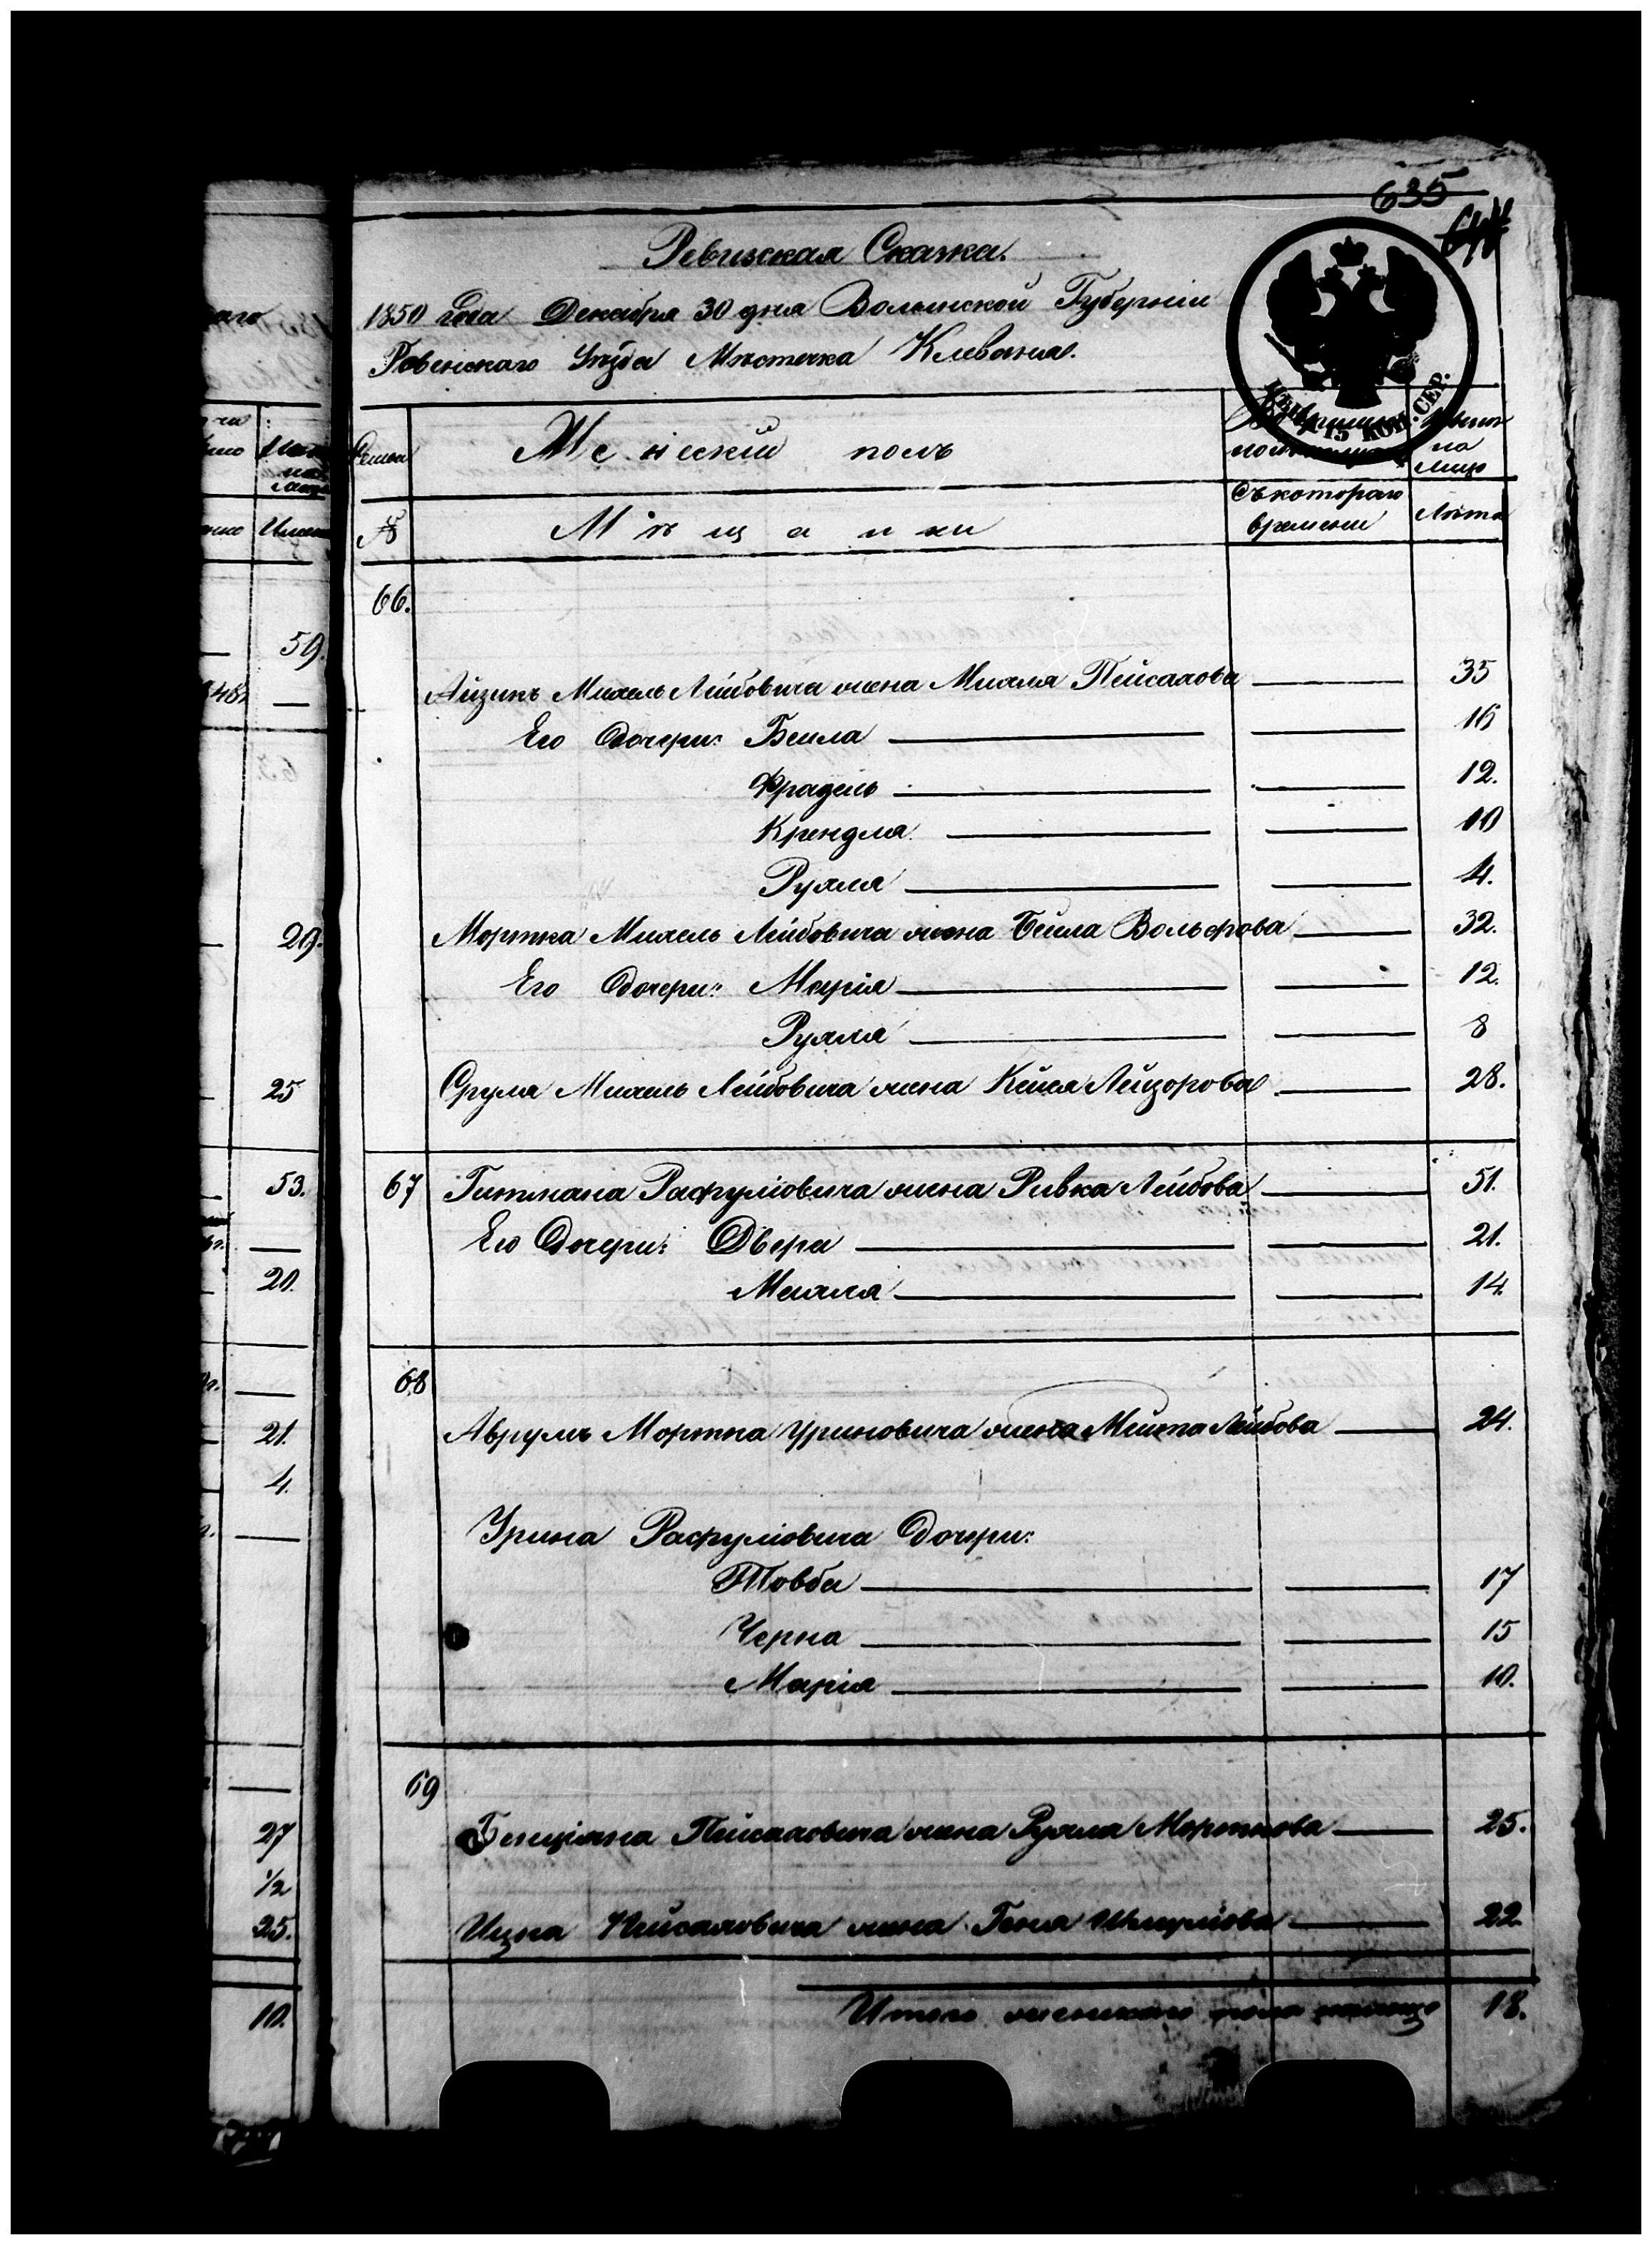 635
Ревизская Сказка.
1850 года Декабря 30 дня Волынской Губерніи
Ровенскаго Уѣзда Мѣстечка Клеваня.
ЦЕНА 15 КОП. СЕР.
Семьи
Женскій полъ
на
лицо
№
Мѣщанки
Съ котораго
времени
Лѣта
66.
Айзикъ Михель Лейбовича жена Михля Пейсахова 35
Его Дочери: Бейла 16
Фрадель 12.
Крендля 10
Рухля 4.
Мортка Михель Лейбовича жена Бейла Вольфова 32.
Его дочери: Марія 12.
Рухля 8
Сруля Михель Лейбовича жена Кейля Лейзорова 28.
67 Гитмана Рафуліовича жена Ривка Лейбова 51.
Его Дочери: Двера 21.
Михля 14.
68
Аврумъ Мортка Уриновича жена Мейта Лейбова 24.
Урина Рафуліовича Дочери:
Товба 17
Черна 15
Марія 10.
69
Бенціяна Пейсаховича жена Рухля Морткова 25.
Ицка Пейсаховича жена Геня Шмуліова 22.
Итого женскаго пола налицо 18.
59.
29.
25
53.
20.
21.
4.
27
1/2
25.
10.